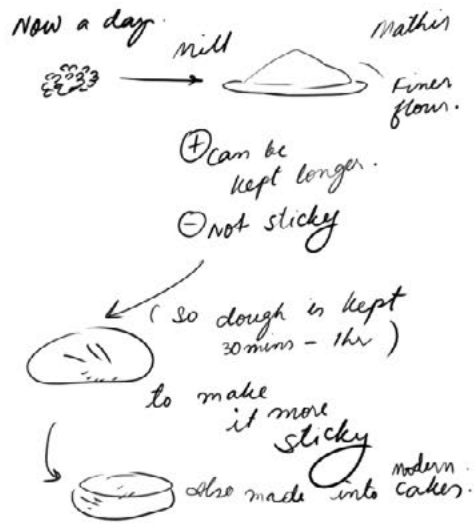 Now a day.
Mill
Mathir
Finer
flour.
+ can be
kept longer.
- Not sticky
(So dough is kept
30mins - 1hr)
to make
it more
sticky
Also made into modern cakes.